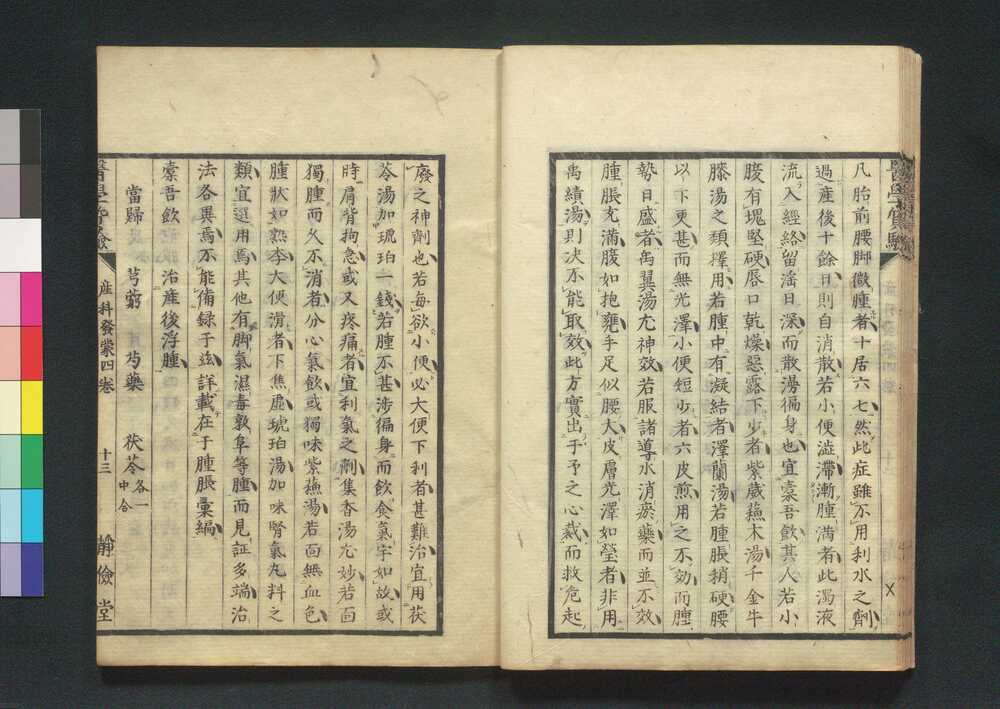 凡胎前腰脚微腫者十居六七然此症雖不用利水之劑
過産後十餘日則自消散若小便澁滯漸腫滿者此濁液
流入經絡留滛日深而散漫徧身也宜橐吾飮其人若小
腹有塊堅硬唇口乾燥惡露下少者紫葳蘓木湯千金牛
膝湯之類擇用若腫中有凝結者澤蘭湯若腫脹稍硬腰
以下更甚而無光澤小便短少者六皮煎用之不効而腫
勢日盛者禹翼湯尤神效若服諸導水消瘀藥而並不效
腫脹充滿腹如抱甕手足似腰大皮膚光澤如瑩者非用
禹績湯則决不能取效此方實出于予之心裁而救危起
廢之神劑也若每欲小便必大便下利者甚難治宜用茯
苓湯加琥珀一錢若腫不甚涉徧身而飮食氣宇如故或
時肩背拘急或又疼痛者宜利氣之劑集香湯尤妙若面
獨腫而久不消者分心氣飮或獨味紫蘓湯若面無血色
腫狀如熟李大便滑者下焦虛琥珀湯加味腎氣丸料之
類宜選用焉其他有脚氣濕毒敦阜等腫而見証多端治
法各異焉不能備録于玆詳載在于腫脹彙編
橐吾飮 治産後浮腫
當歸 芎藭 芍藥 茯苓各一中合
産科發蒙四卷 十三 靜儉堂